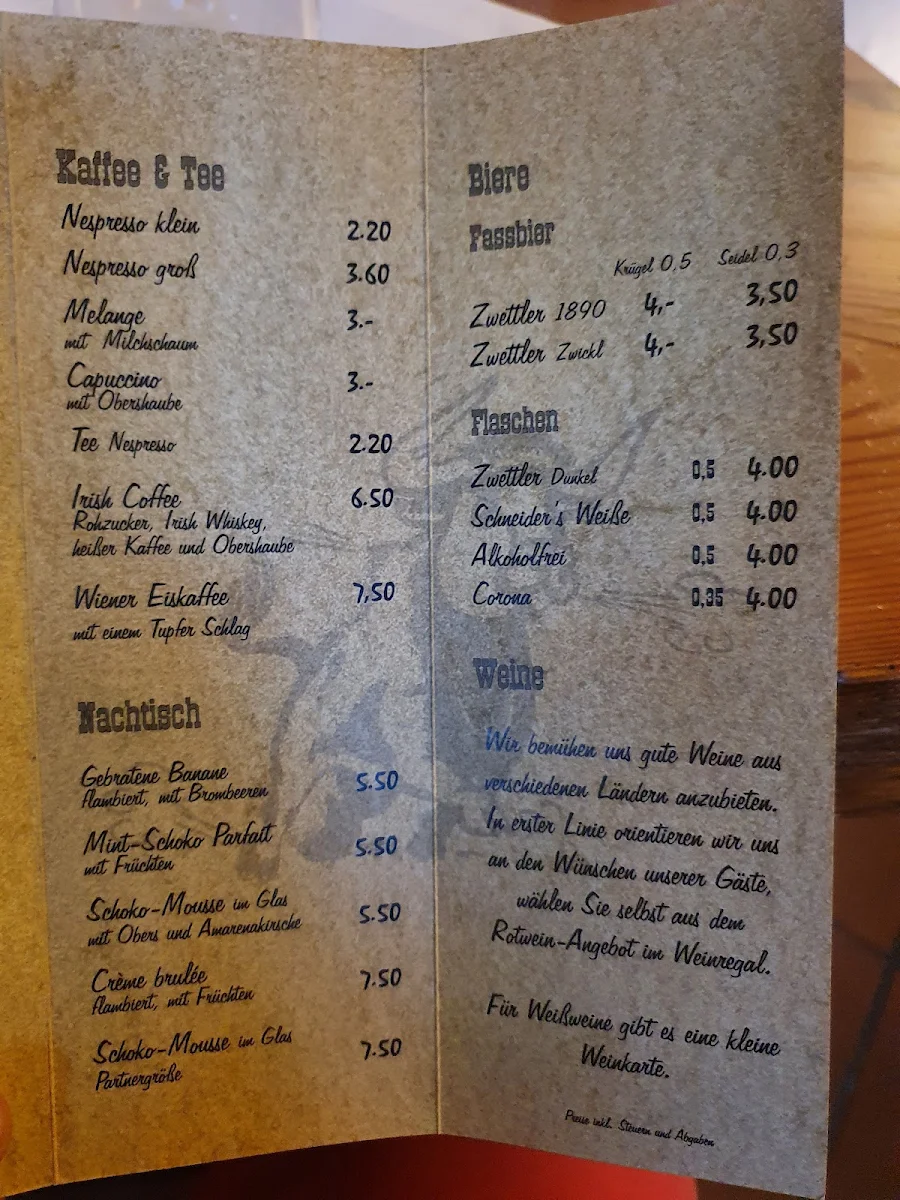 Kaffee & Tee
Nespresso klein 2.20
Nespresso groß 3.60
Melange 3.-
mit Milchschaum
Capuccino 3.-
mit Obershaube
Tee Nespresso 2.20
Irish Coffee 6.50
Rohzucker, Irish Whiskey,
heißer Kaffee und Obershaube
Wiener Eiskaffee 7,50
mit einem Tupfer Schlag
Nachtisch
Gebratene Banane 5.50
flambiert, mit Brombeeren
Mint-Schoko Parfait 5.50
mit Früchten
Schoko-Mousse im Glas 5.50
mit Obers und Amarenakirsche
Crème brulée 7.50
flambiert, mit Früchten
Schoko-Mousse im Glas 7.50
Partnergröße
Biere
Fassbier
Krügel 0,5 Seidel 0,3
Zwettler 1890 4,- 3,50
Zwettler Zwickl 4,- 3,50
Flaschen
Zwettler Dunkel 0,5 4.00
Schneider's Weiße 0,5 4.00
Alkoholfrei 0,5 4.00
Corona 0,35 4.00
Weine
Wir bemühen uns gute Weine aus
verschiedenen Ländern anzubieten.
In erster Linie orientieren wir uns
an den Wünschen unserer Gäste,
wählen Sie selbst aus dem
Rotwein-Angebot im Weinregal.
Für Weißweine gibt es eine kleine
Weinkarte.
Preise inkl. Steuern und Abgaben